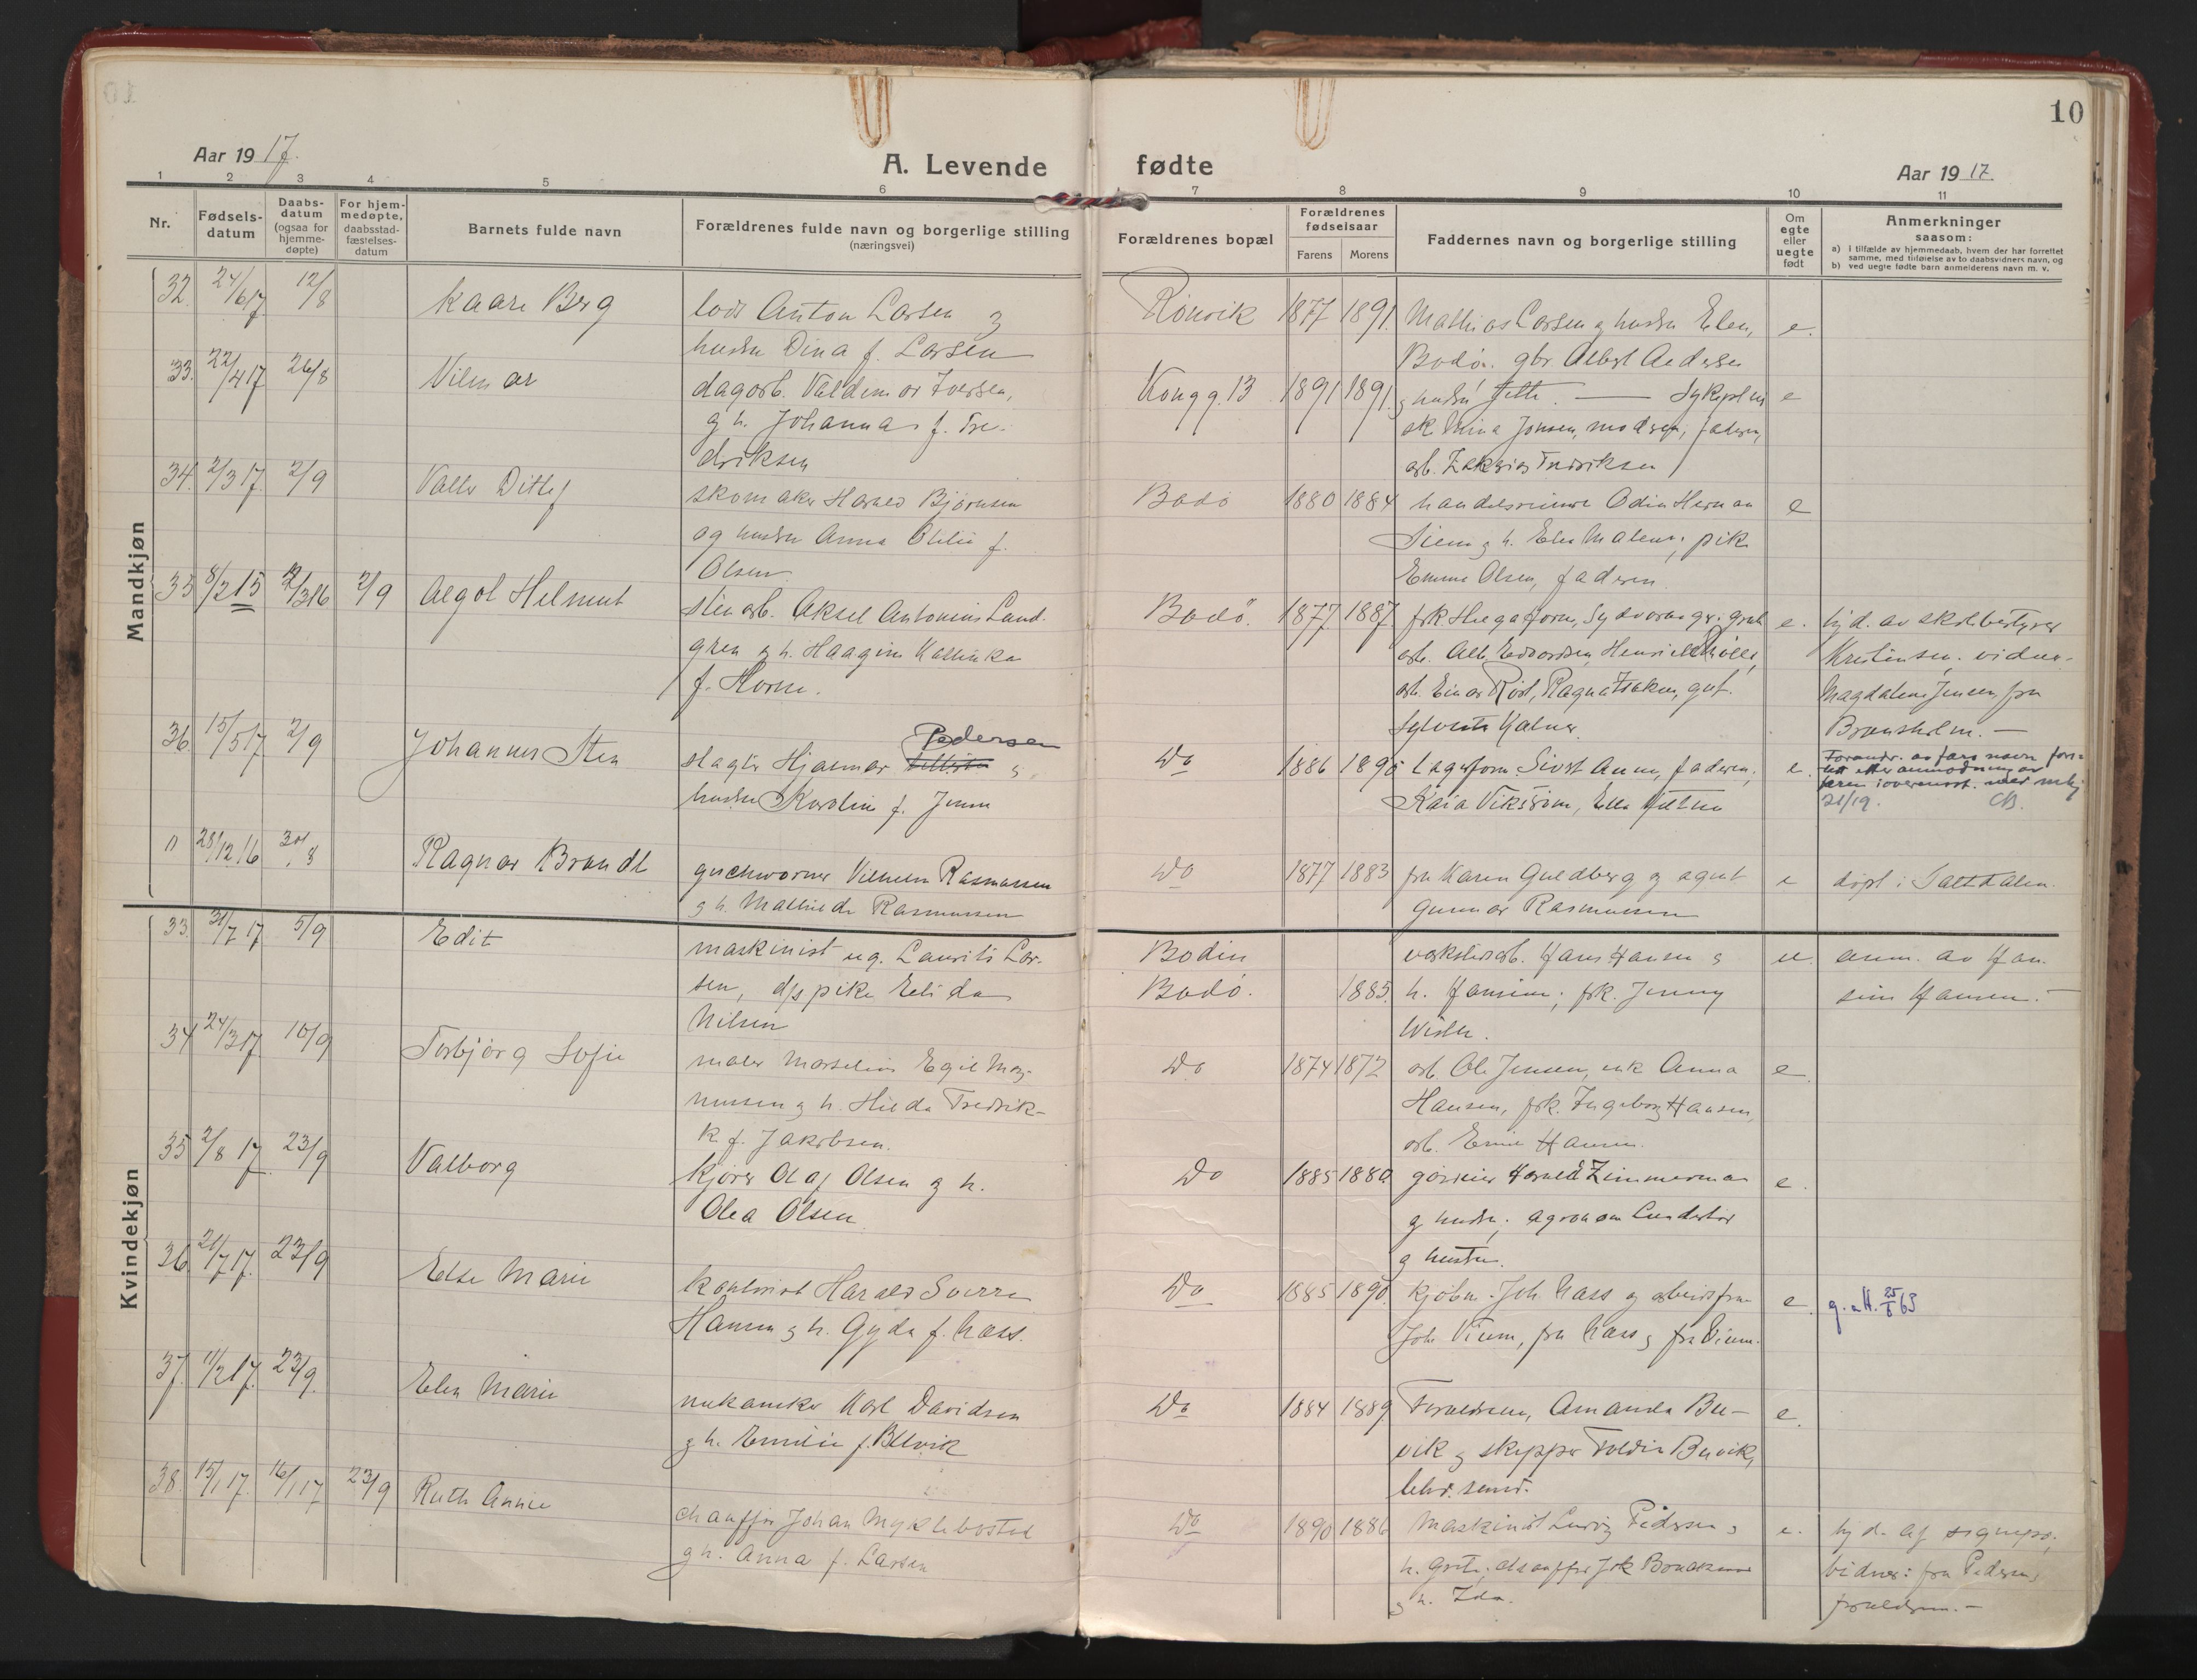 10
Aar 1917.
A. Levende fødte
Aar 1917.
1 2 3 4 5 6 7 8 9 10 11
Nr.
Fødsels-
datum
Daabs-
datum
(ogsaa for
hjemme-
døpte)
For hjem-
medøpte,
daabsstad-
fæstelses-
datum
Barnets fulde navn
Forældrenes fulde navn og borgerlige stilling
(næringsvei)
Forældrenes bopæl
Forældrenes
fødselsaar
Farens Morens
Faddernes navn og borgerlige stilling
Om
egte
eller
uegte
født
Anmerkninger
saasom:
a) i tilfælde av hjemmedaab, hvem der har forrettet
samme, med tilføielse av to daabsvidners navn, og
b) ved uegte fødte barn anmelderens navn m. v.
Mandkjøn
32. 24/6 17 12/8 Kaare Berg
lods Anton Larsen og
hustru Dina f. Larsen
Rønvik 1877 1891.
Mathias Larsen g hustru Elen, e.
Bodø. gbr Albert Andersen
33. 22/4 17 26/8 Vilmar
dagarb. Valdemar Iversen,
g h. Johanna f. Fre-
driksen
Kongg. 13 1891 1891.
g hustru Jette. — Sykepl e
Mina Jonsen, moderen, faderen,
arb. Zakarias Fredriksen
34. 2/3 17. 2/9 Valter Ditlef
skomaker Harald Bjørnsen
og hustru Anna Otelie f.
Olsen
Bodø 1880 1884
handelsreisende Odin Herman e
Siem g h. Elen Malene; pike
Emma Olsen, faderen
35 8/2 15 12/3 16 2/9 Algot Helmut
stenarb. Aksel Antonius Land-
gren g h. Haagine Kathinka
f. Horn.
Bodø. 1877 1887
e. hj d. av skolebestyrer
arb. Alb. Edvardsen, Henriette
arb. Einar Røst, Ragna Isaksen,
Kristensen. vidner.
Magdalene Jensen, fru
Bransholm. —
36. 15/5 17 2/9 Johannes Sten
slagter Hjalmar Pedersen g
hustru Karoline f. Jensen
Do 1886 1895
Lagerform. Sivert Aune, faderen, e.
Kaia Vikstrøm, Ella
Forandr. av fars navn fore-
tat etter anmodning av
faren i overensst. med mhj
21/19. CB.
n 28/12 16 30/8 Ragnar Brandt
Vilhelm Rasmussen
g h. Mathilde Rasmussen
Do 1877 1883
fru Karen Guldberg g agent e
Gunnar Rasmussen
døpt i Saltdalen.
Kvindekjøn
33. 31/7 17 5/9 Edit
maskinist ug. Laurits Lar-
sen, d/s pike Elida
Nilsen
Bodin
Bodø. 1885.
Hans Hansen g u.
h. Hansine; frk. Jenny
anm. av Han-
sine Hansen. —
34 24/3 17 10/9 Torbjørg Sofie
maler Marselius Egil Mag-
nussen g h. Hilda Fredrik-
k f. Jakobsen.
Do 1874 1872
arb. Ole Jensen, enk Anna e
Hansen, frk. Ingeborg Hansen,
arb. Emil Hansen.
35 2/8 17. 23/9 Valborg
kjører Olaf Olsen g h.
Olea Olsen
Do 1885 1880
Harald Zimmerman e.
g hustru; agronom
g hustru.
36 21/7 17. 23/9 Else Marie
kontorist Harald Sverre
Hansen g h. Gyda f. Nass.
Do 1885 1890.
kjøbm. Joh. Nass g arbeidsfor. e.
Joh. Vium, fru Nass g fru Vium.
g. m. 25/8 63
37. 11/2 17. 23/9. Elen Marie
mekaniker Karl Davidsen
g h. Emilie f. Buvik
Do 1884 1889
Foreldrene, Amanda Bu- e.
vik g skipper Buvik,
38. 15/1 17. 16/1 17 23/9 Ruth Annie
chauffør Johan Myklebostad
g h. Anna f. Larsen
Do 1890 1886
Maskinist Ludvig Pedersen g e.
h. Grete; chauffør
g h. Ida.
hj d. af sognepr.;
vidner: fru Pedersen g
foreldrene. —